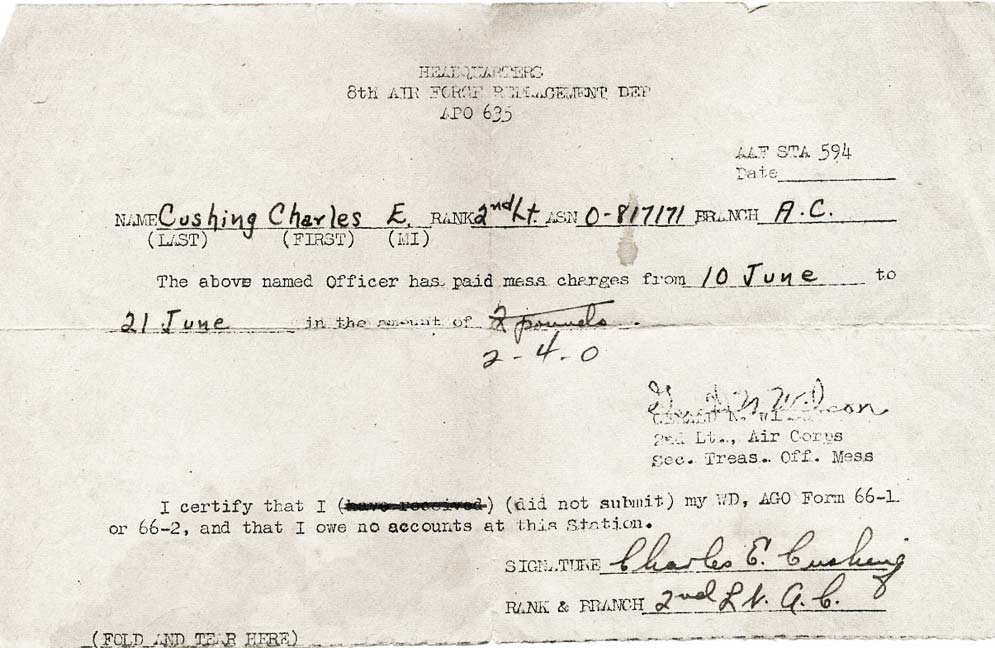 HEADQUARTERS
8th AIR FORCE REPLACEMENT DEP
APO 635
AAF STA 594
Date
NAME Cushing Charles E. RANK 2nd Lt. ASN O-817171 BRANCH A.C.
(LAST) (FIRST) (MI)
The above named Officer has paid mess charges from 10 June to
21 June in the amount of 2 pounds.
2-4-0
2nd Lt., Air Corps
Sec. Treas. Off. Mess
I certify that I (have received) (did not submit) my WD, AGO Form 66-1
or 66-2, and that I owe no accounts at this Station.
SIGNATURE Charles E. Cushing
RANK & BRANCH 2nd Lt. A.C.
(FOLD AND TEAR HERE)